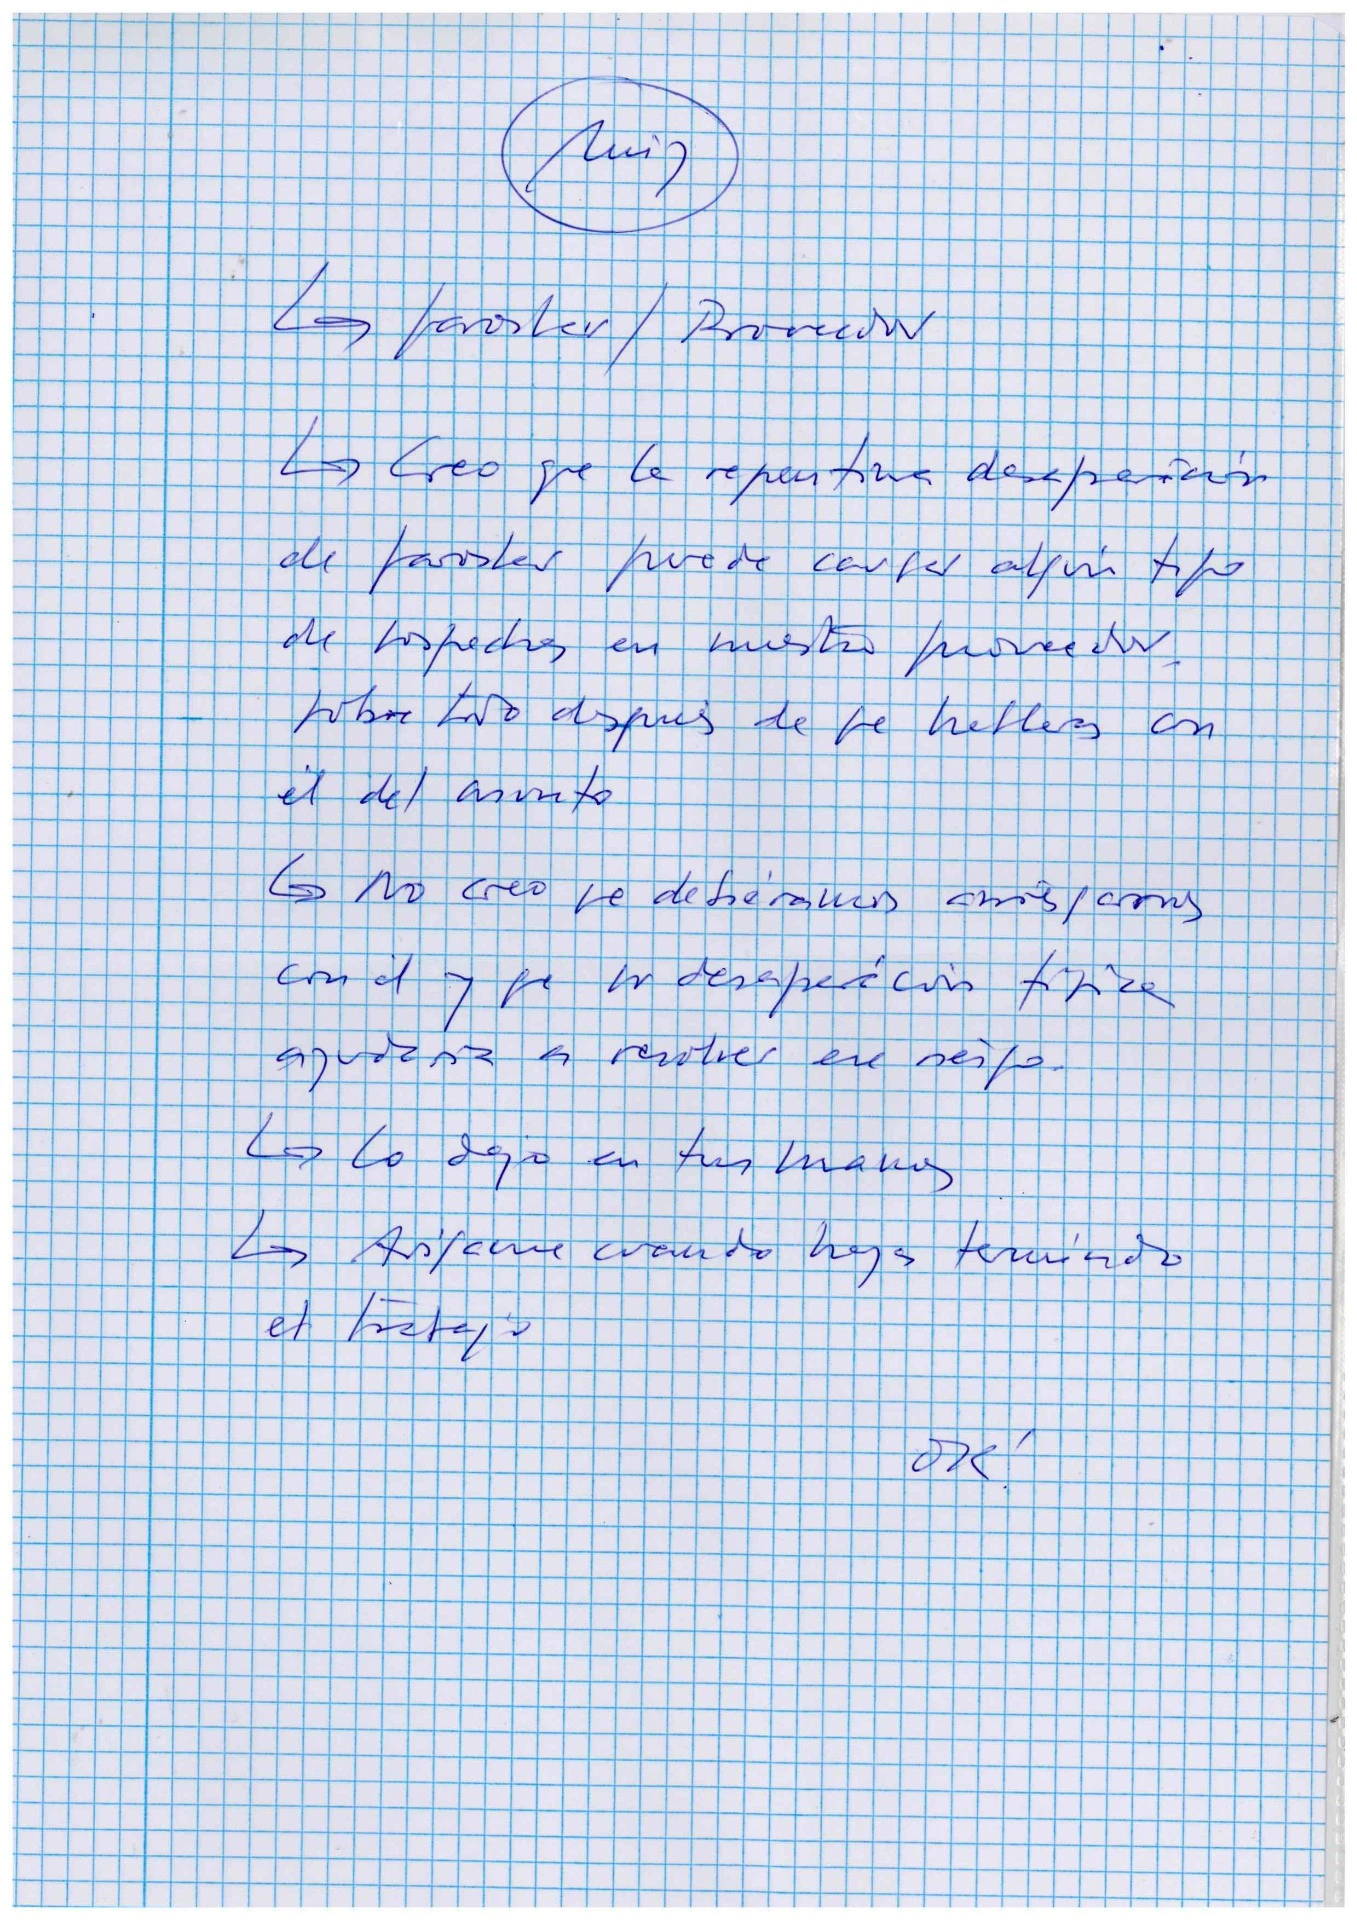 ↳ / Proveedor
↳ Creo que la repentina desaparición
de puede causar algún tipo
de sospechas en nuestro proveedor,
sobre todo después de que hablaras con
él del asunto
↳ No creo que debiéramos arriesgarnos
con él y que su desaparición física
ayudaría a resolver ese riesgo.
↳ Lo dejo en tus manos
↳ Avísame cuando hayas terminado
el trabajo
OK!